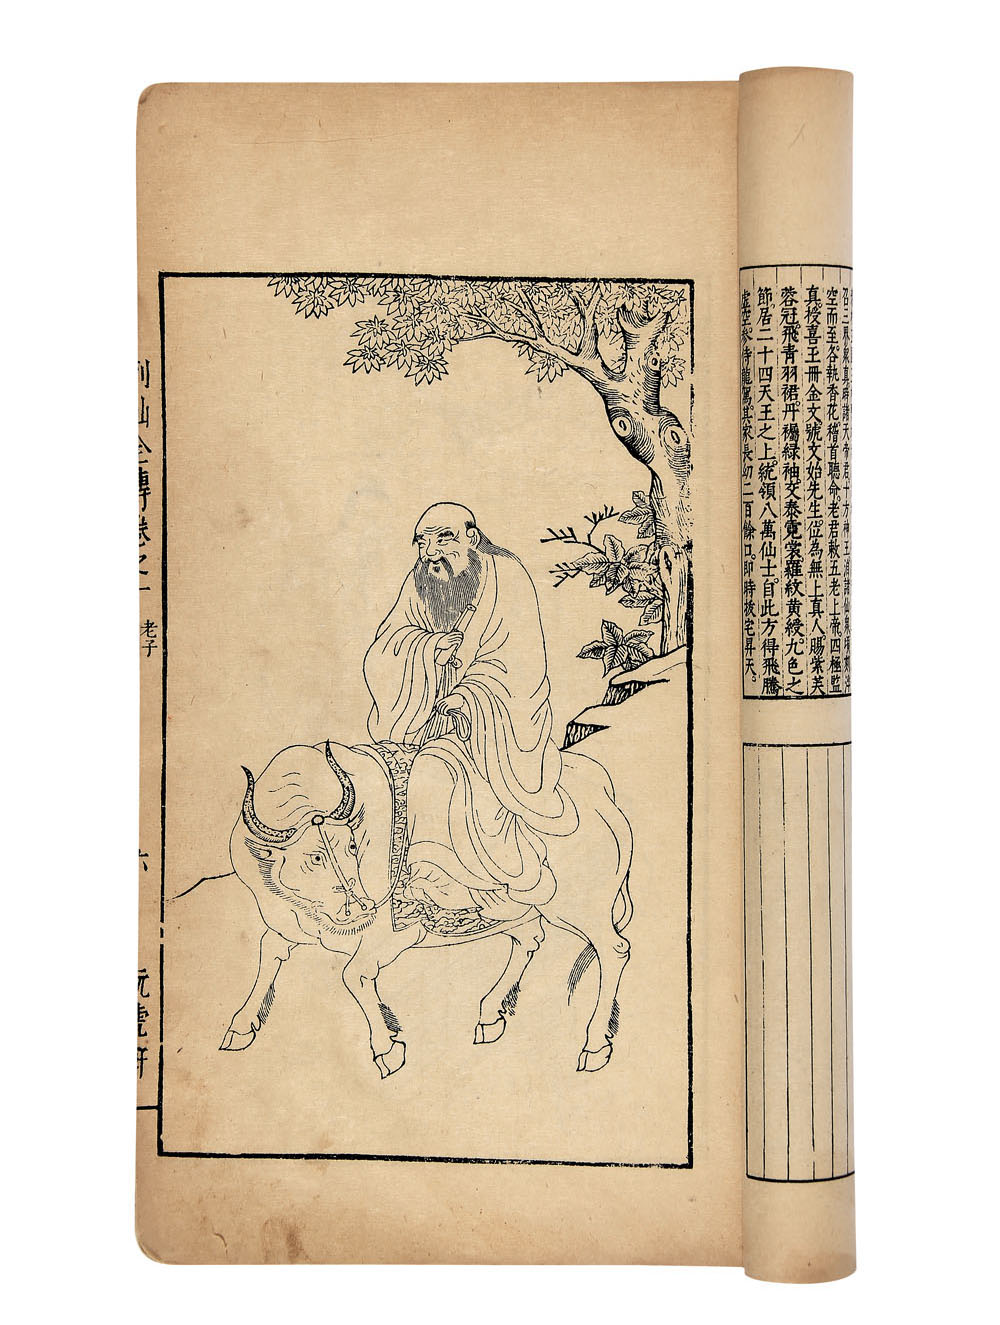 召三界衆真時諸天帝君十方神王洎諸仙衆頃刻浮
空而至各執香花稽首聽命。老君敕五老上帝四極監
真。授喜玉冊金文號文始先生。位為無上真人。賜紫芙
蓉冠。飛青羽裙。丹襡綠袖。交泰霓裳。羅紋黃綬。九色之
節。居二十四天王之上。統領八萬仙士。自此方得飛騰
虛空。參侍龍駕。其家長幼二百餘口。即時拔宅昇天。
列仙全傳卷之一
老子
六
玩虎軒